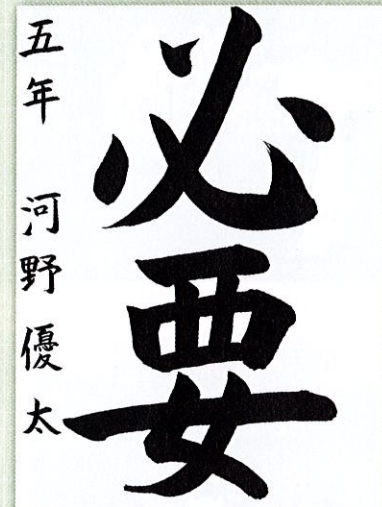 必要
五年 河野優太